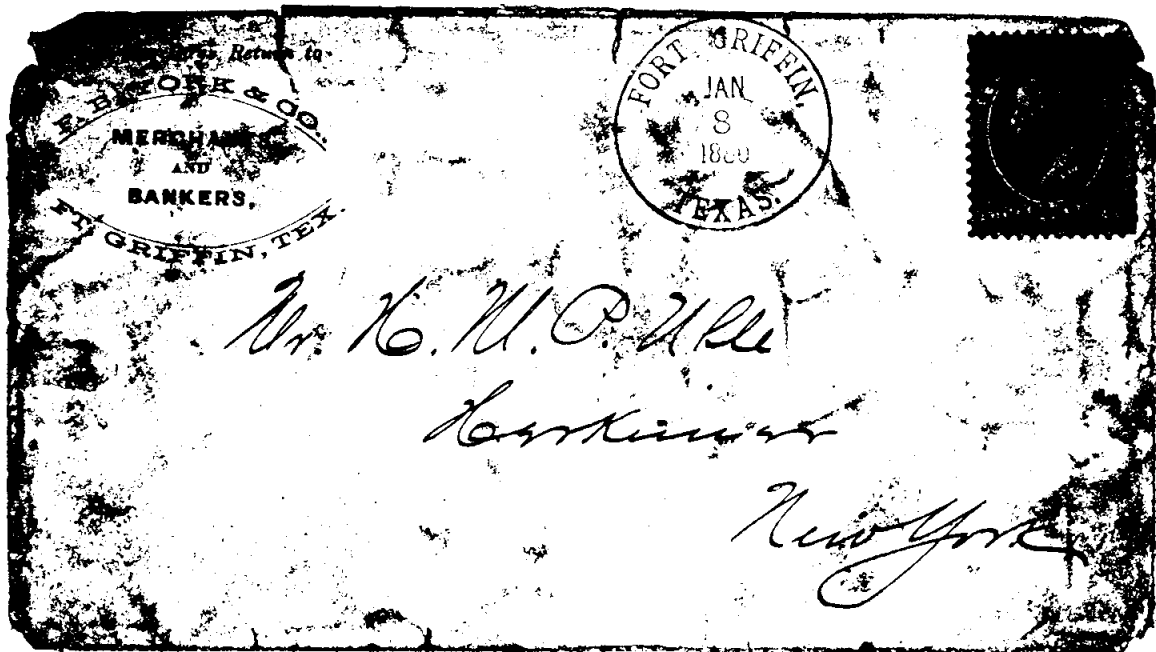 Return to
F. B. YORK & CO.,
MERCHANTS
AND
BANKERS,
FT. GRIFFIN, TEX.
FORT GRIFFIN,
JAN
8
1880
TEXAS.
Mr. H. M. P.
Herkimer
New York